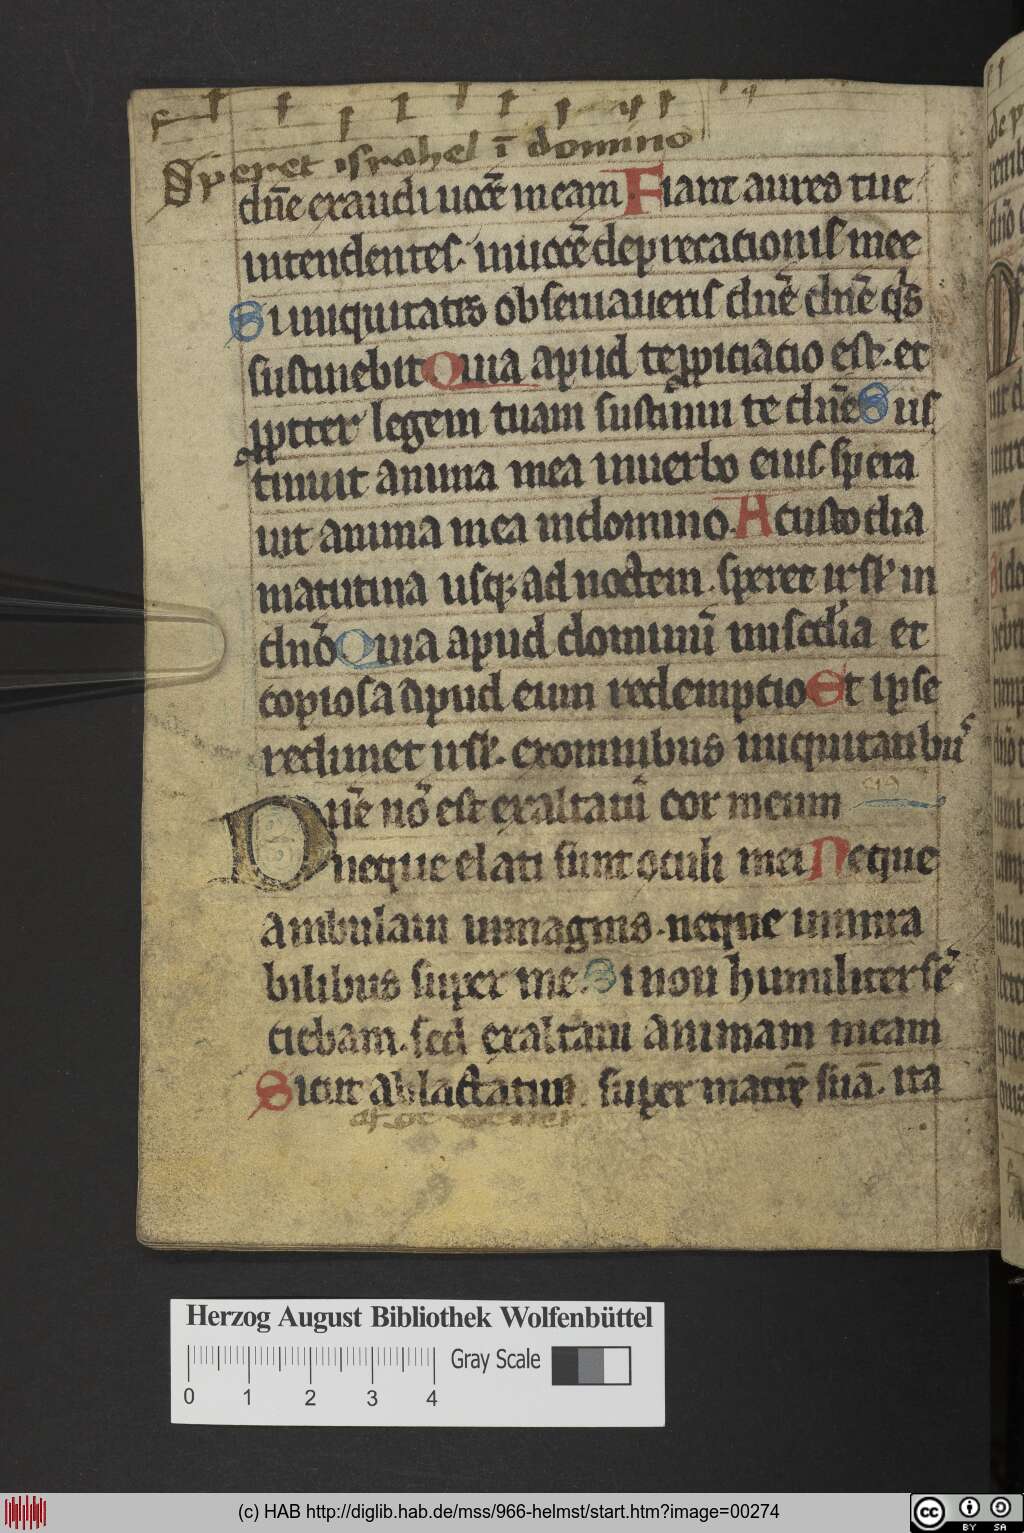 Speret israhel ī domino
dn̄e exaudi uocē meam Fiant aures tue
intendentes. inuocē deprecationis mee
Si iniquitates obseruaueris dn̄e dn̄e q̄s
sustinebit Quia apud te ꝓpiciacio est. et
ꝓpter legem tuam sustinui te dn̄e Sus
tinuit anima mea inuerbo eius. spera
uit anima mea indomino. A custodia
matutina usq; ad noctem. speret isrł in
dn̄o Quia apud dominū misc̄dia et
copiosa apud eum redemptio Et ipse
redimet isrł. exomnibus iniquitatibus
Dn̄e nō est exaltatū cor meum
neque elati sunt oculi mei Neque
ambulaui inmagnis. neque inmira
bilibus super me. Si non humiliter sē
ciebam. sed exaltaui animam meam
Sicut ablactatus super matrē suā. ita
Herzog August Bibliothek Wolfenbüttel
Gray Scale
0 1 2 3 4
(c) HAB http://diglib.hab.de/mss/966-helmst/start.htm?image=00274
cc BY SA